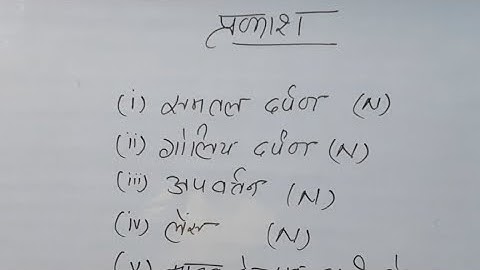 प्रकाश
(i) समतल दर्पण (N)
(ii) गोलिय दर्पण (N)
(iii) अपवर्तन (N)
(iv) लेंस (N)
(v) मानव